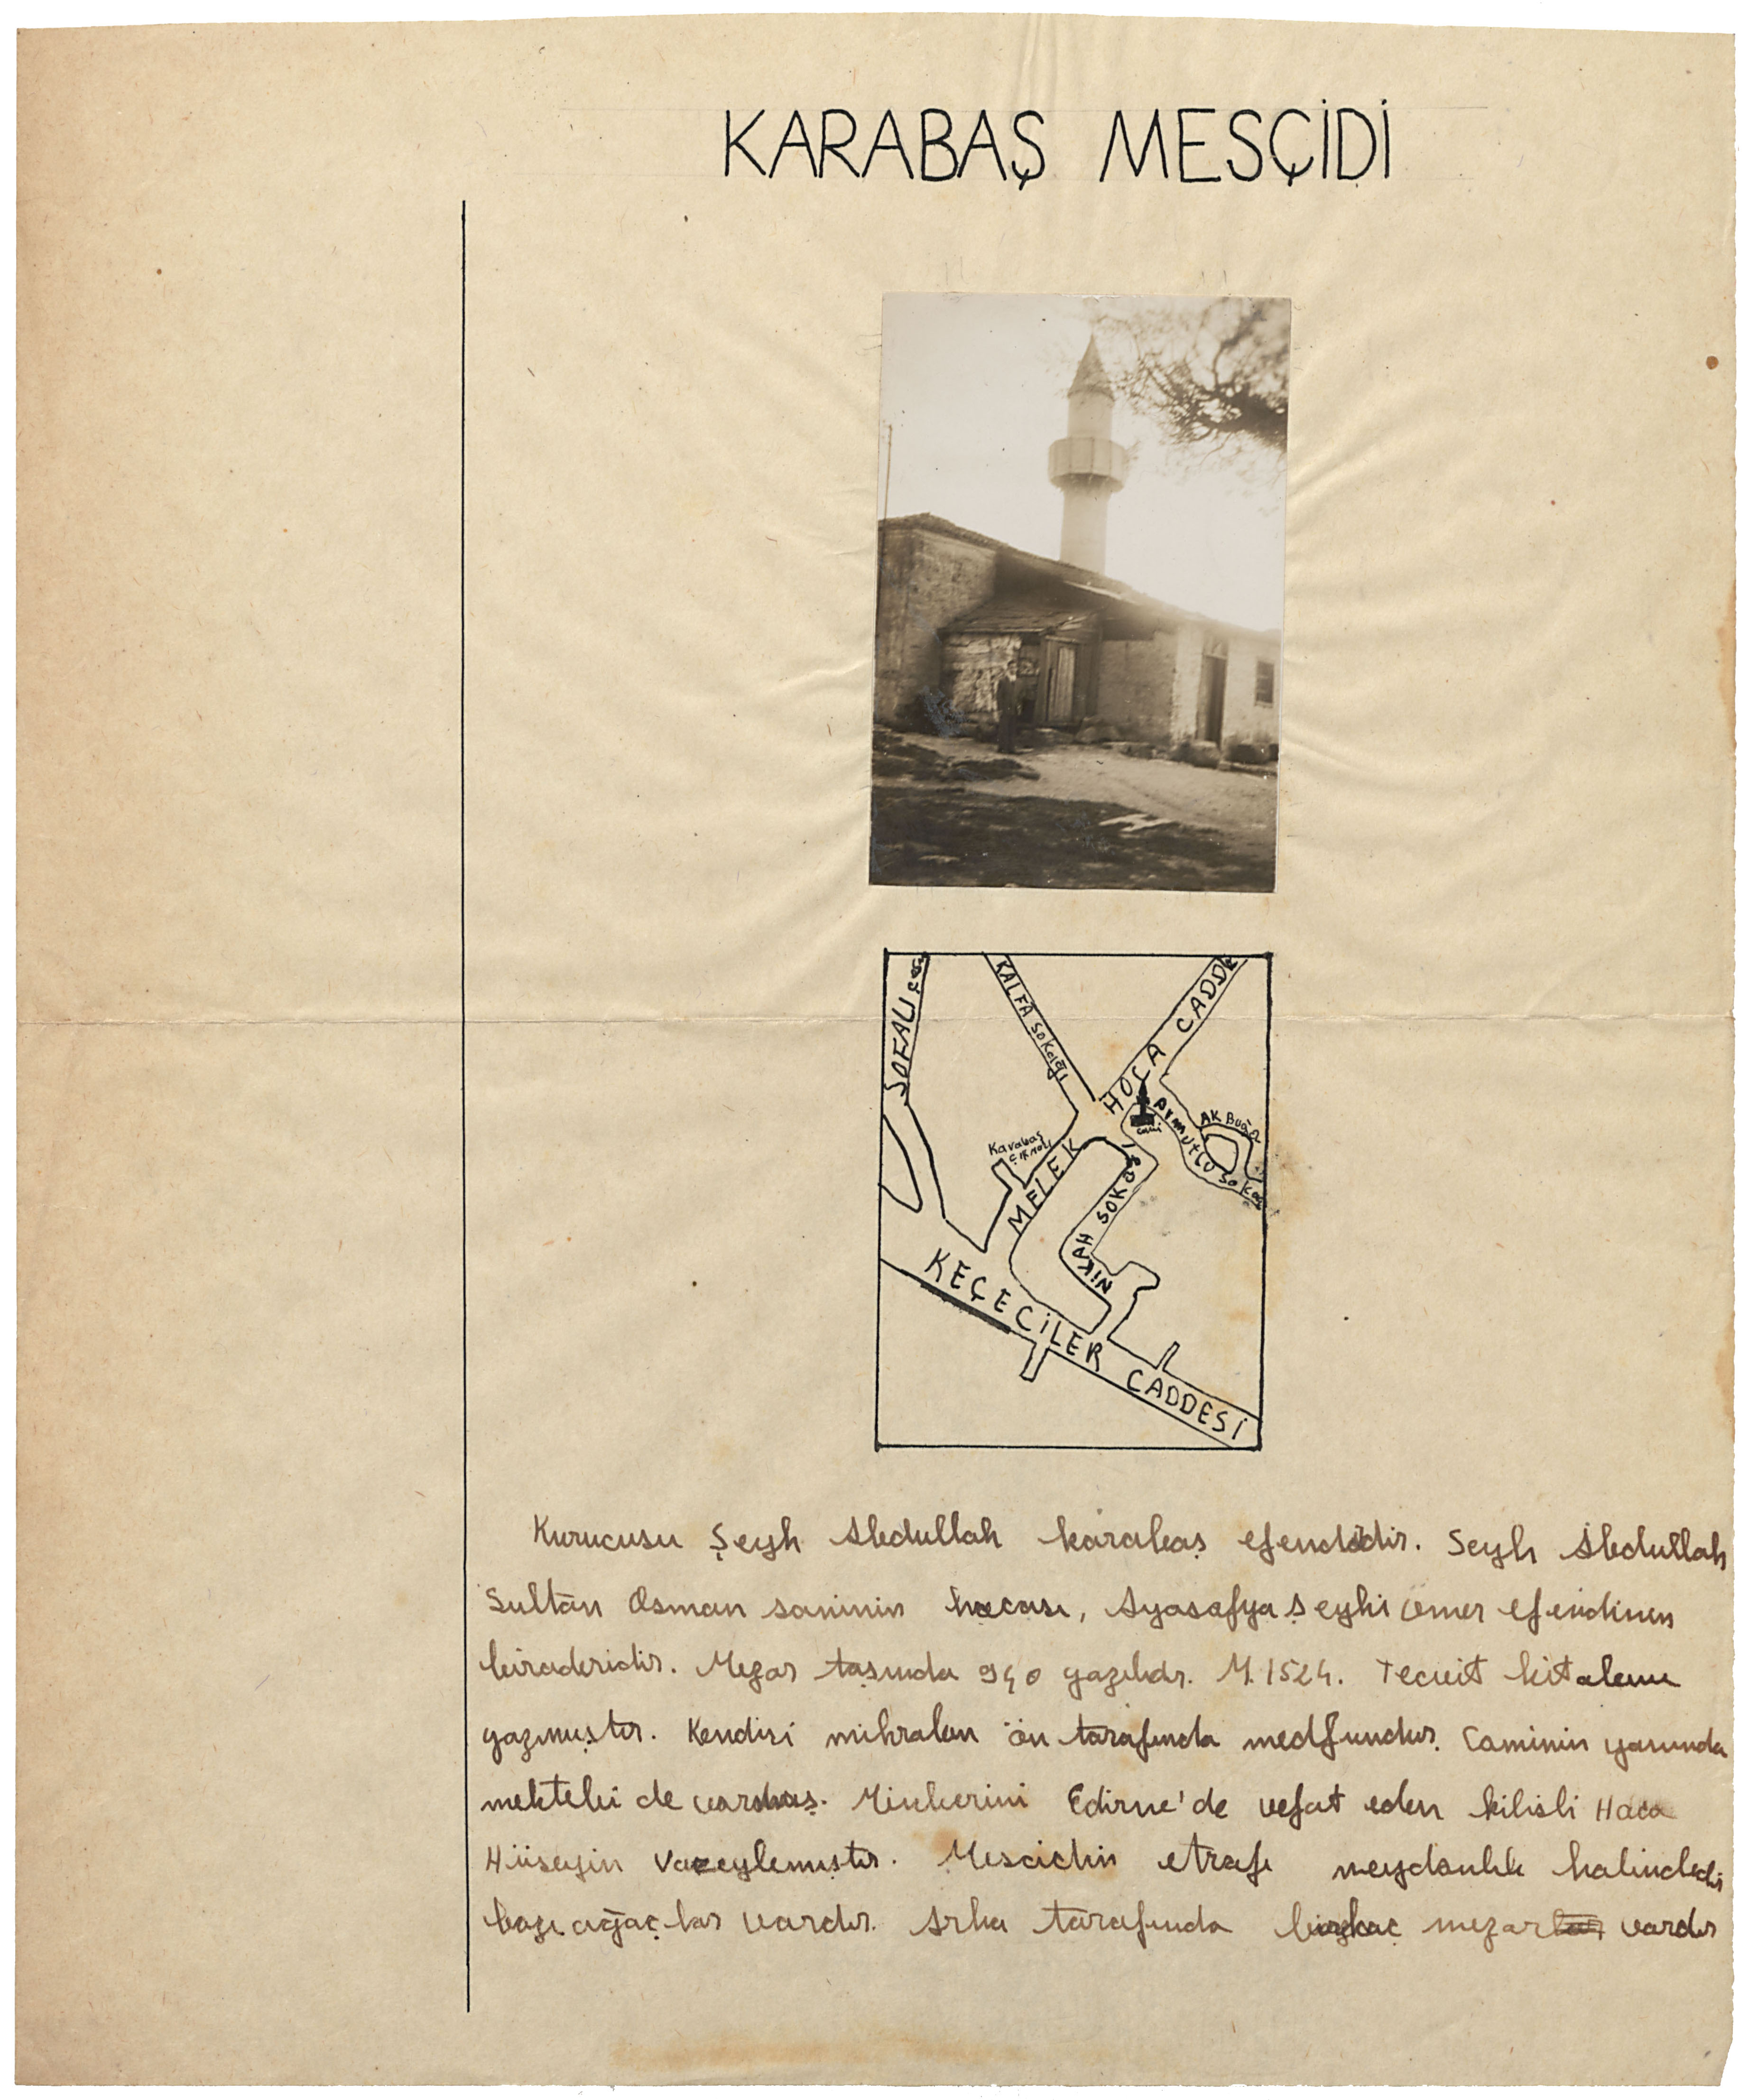 KARABAŞ MESÇİDİ
SOFALI ÇEŞ
KALFA SOKAĞI
HOCA CADDE
Karabaş
Çıkmazı
MELEK
Cami
ARMUTLU SOKAĞ
AK BUĞDA
NİKAH SOKAĞ
KEÇECİLER CADDESİ
Kurucusu Şeyh Abdullah karabaş efendidir. Seyh Abdullah
Sultan Osman saninin hocası, Ayasofya şeyhi ömer efendinin
biraderidir. Mezar taşında 940 yazılıdr. M. 1524. Tecvit kitabını
yazmıştır. Kendisi mihrabın ön tarafında medfundur. Caminin yanında
mektebi de varmış. Minberini Edirne'de vefat eden kilisli Haca
Hüseyin vazeylemiştir. Mescidin etrafı meydanlık halindedir
bazı ağaçlar vardır. Arka tarafında birkaç mezar vardır